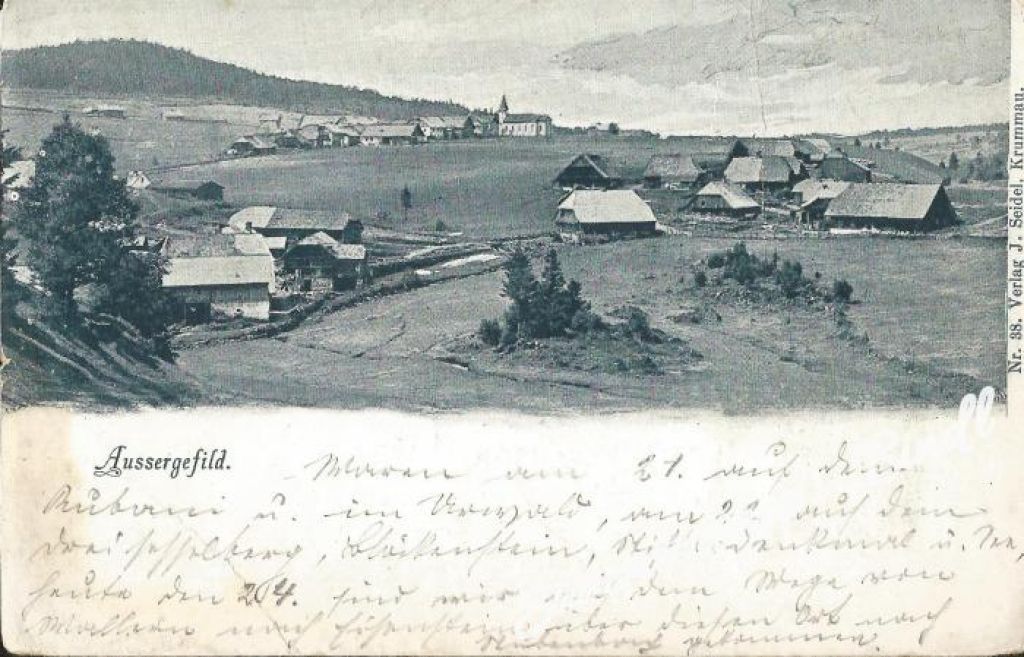 Nr. 38. Verlag J. Seidel, Krummau.
Aussergefild.
Waren am 21. auf dem
Kubani u. im Urwald, am 22. auf dem
Dreisesselberg, Blöckenstein, denkmal u. See,
heute den 24. sind wir auf dem Wege von
Wallern nach Eisenstein über diesen Ort nach
gekommen.